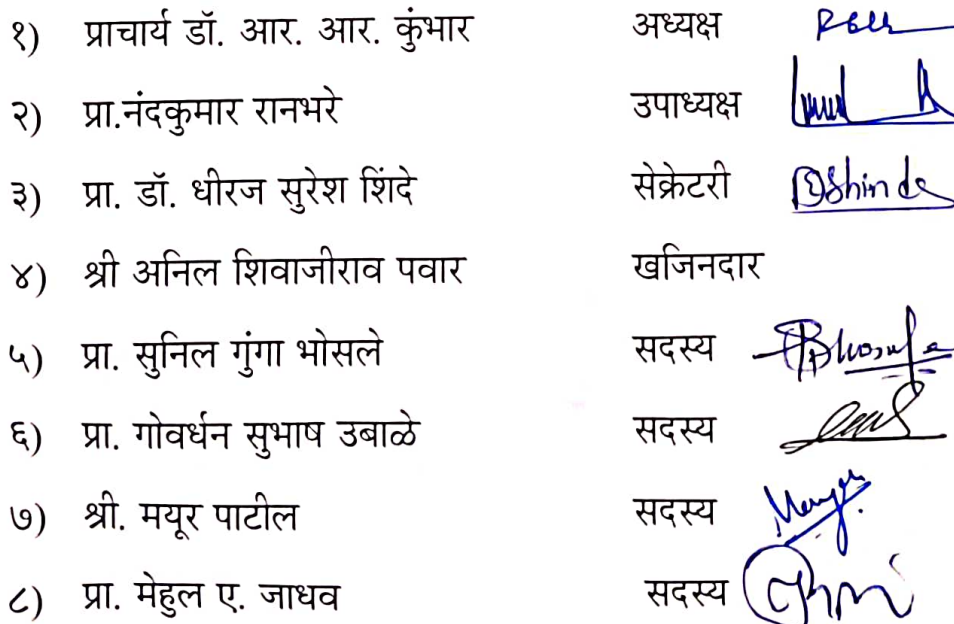 १) प्राचार्य डॉ. आर. आर. कुंभार अध्यक्ष
२) प्रा.नंदकुमार रानभरे उपाध्यक्ष
३) प्रा. डॉ. धीरज सुरेश शिंदे सेक्रेटरी DShinde
४) श्री अनिल शिवाजीराव पवार खजिनदार
५) प्रा. सुनिल गुंगा भोसले सदस्य
६) प्रा. गोवर्धन सुभाष उबाळे सदस्य
७) श्री. मयूर पाटील सदस्य
८) प्रा. मेहुल ए. जाधव सदस्य